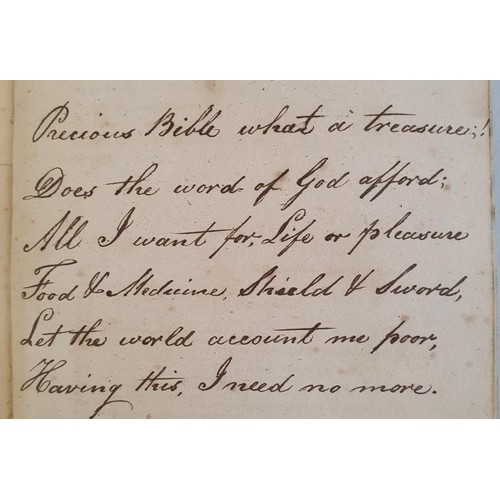 Precious Bible what a treasure;!
Does the word of God afford;
All I want for, Life or pleasure
Food & Medicine, Shield & Sword,
Let the world account me poor,
Having this, I need no more.